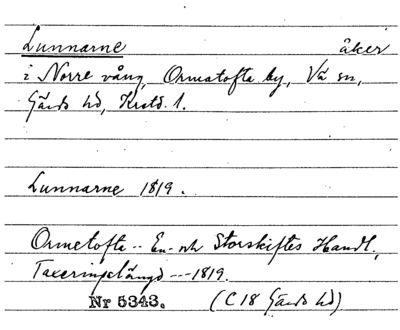 Lunnarne åker
i Norre vång, Ormatofta by, Vä sn,
Gärds hd, Krstd. l.
Lunnarne 1819.
Ormetofta -- En- och Storskiftes Handl.,
Taxeringslängd --- 1819.
Nr 5343. (C 18 Gärds hd)